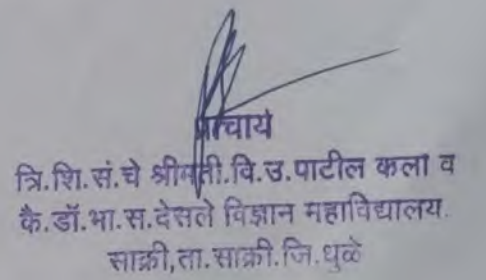 प्राचार्य
त्रि.शि.सं.चे श्रीमती.वि.उ.पाटील कला व
कै.डॉ.भा.स.देसले विज्ञान महाविद्यालय.
साक्री,ता.साक्री.जि.धुळे